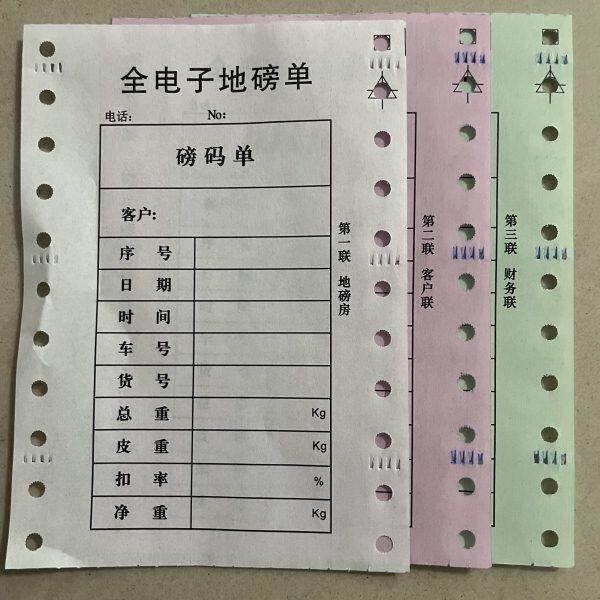 全电子地磅单
电话： No：
磅码单
客户：
序 号
日 期
时 间
车 号
货 号
总 重 Kg
皮 重 Kg
扣 率 %
净 重 Kg
第一联 地磅房
第二联 客户联
第三联 财务联